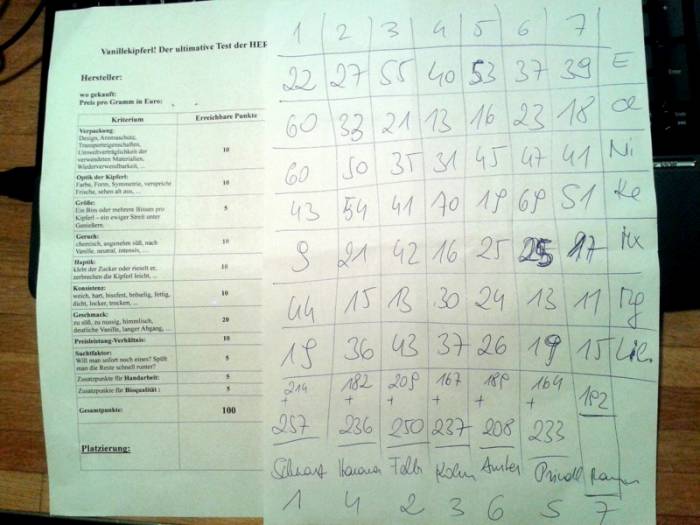 Vanillekipferl! Der ultimative Test der HER
Hersteller:
wo gekauft:
Preis pro Gramm in Euro:
Kriterium Erreichbare Punkte
Verpackung:
Design, Aromaschutz,
Transporteigenschaften,
Umweltverträglichkeit der
verwendeten Materialien,
Wiederverwendbarkeit, ...
10
Optik der Kipferl:
Farbe, Form, Symmetrie, verspricht
Frische, sehen alt aus, ...
10
Größe:
Ein Bim oder mehrere Bissen pro
Kipferl – ein ewiger Streit unter
Genießern.
5
Geruch:
chemisch, angenehm süß, nach
Vanille, neutral, intensiv, ...
10
Haptik:
klebt der Zucker oder rieselt er,
zerbrechen die Kipferl leicht, ...
10
Konsistenz:
weich, hart, bissfest, bröselig, fettig,
dicht, locker, trocken, ...
10
Geschmack:
zu süß, zu nussig, himmlisch,
deutliche Vanille, langer Abgang, ...
20
Preisleistung-Verhältnis: 10
Suchtfaktor:
Will man sofort noch eines? Spült
man die Reste schnell runter?
5
Zusatzpunkte für Handarbeit: 5
Zusatzpunkte für Bioqualität : 5
Gesamtpunkte: 100
Platzierung:
1 2 3 4 5 6 7
22 27 55 40 53 37 39 E
60 33 21 13 16 23 18
60 50 35 31 45 47 41 Ni
43 54 41 70 19 69 51 Ke
9 21 42 16 25 25 17
44 15 13 30 24 13 11
19 36 43 37 26 19 15
214 182 209 167 189 164 192
+ + + + + +
257 236 250 237 208 233
1 4 2 3 6 5 7